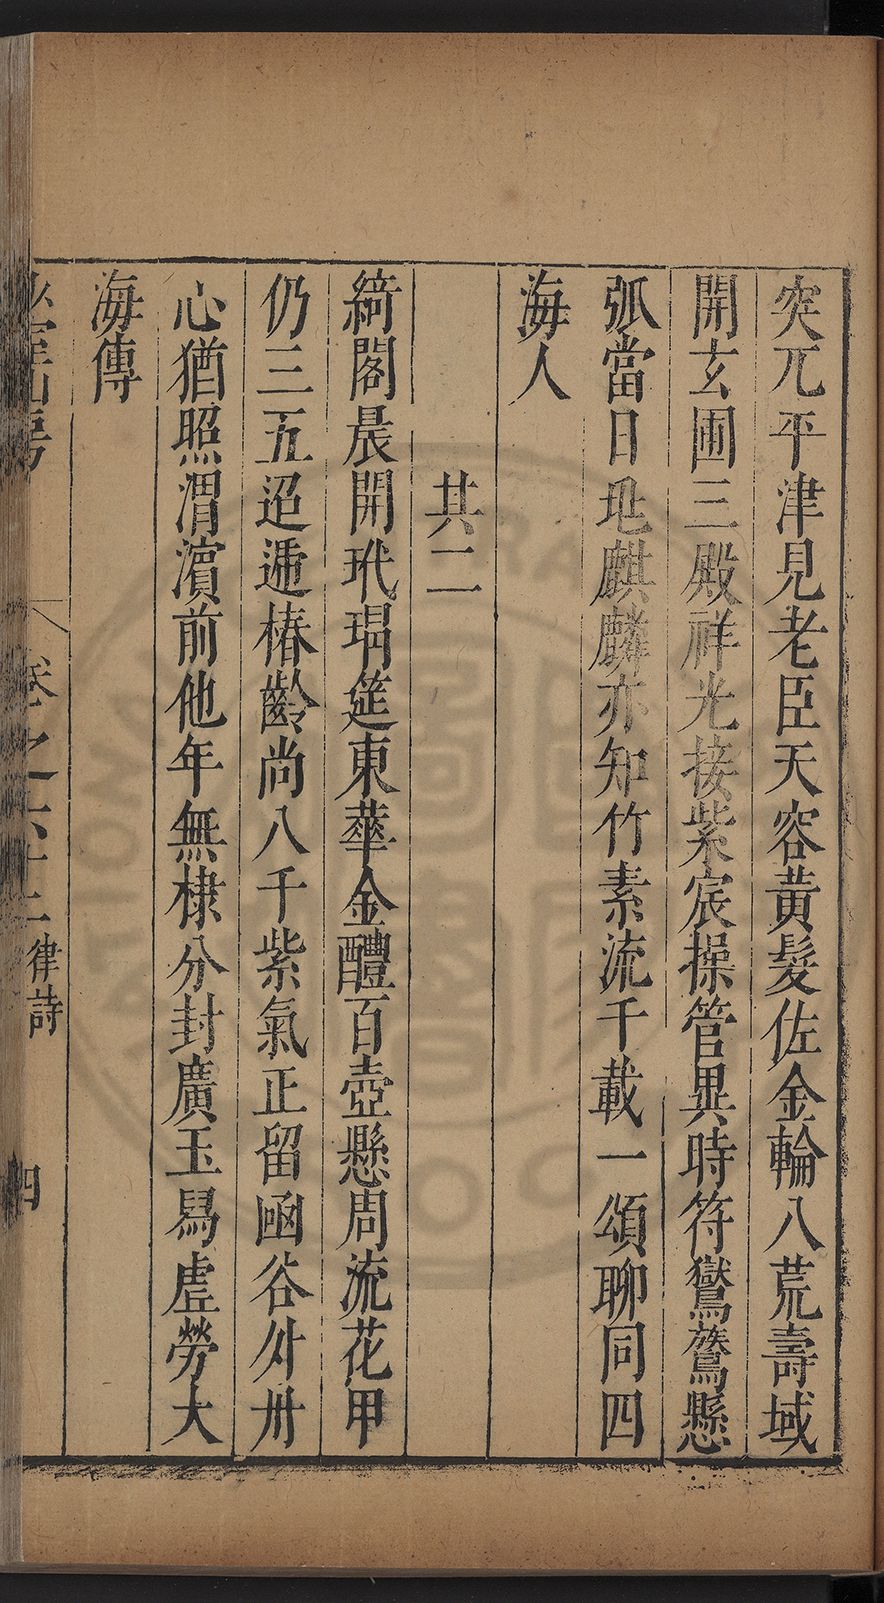 突兀平津見老臣天容黃髮佐金輪八荒壽域
開玄圃三殿祥光接紫宸操管異時符鸑鷟懸
弧當日兆麒麟亦知竹素流千載一頌聊同四
海人
其二
綺閣晨開玳瑁筵東華金醴百壺懸周流花甲
仍三五迢遞椿齡尚八千紫氣正留函谷外丹
心猶照渭濵前他年無棣分封廣玉舄虛勞大
海傳
山房
卷之六十二
律詩
四